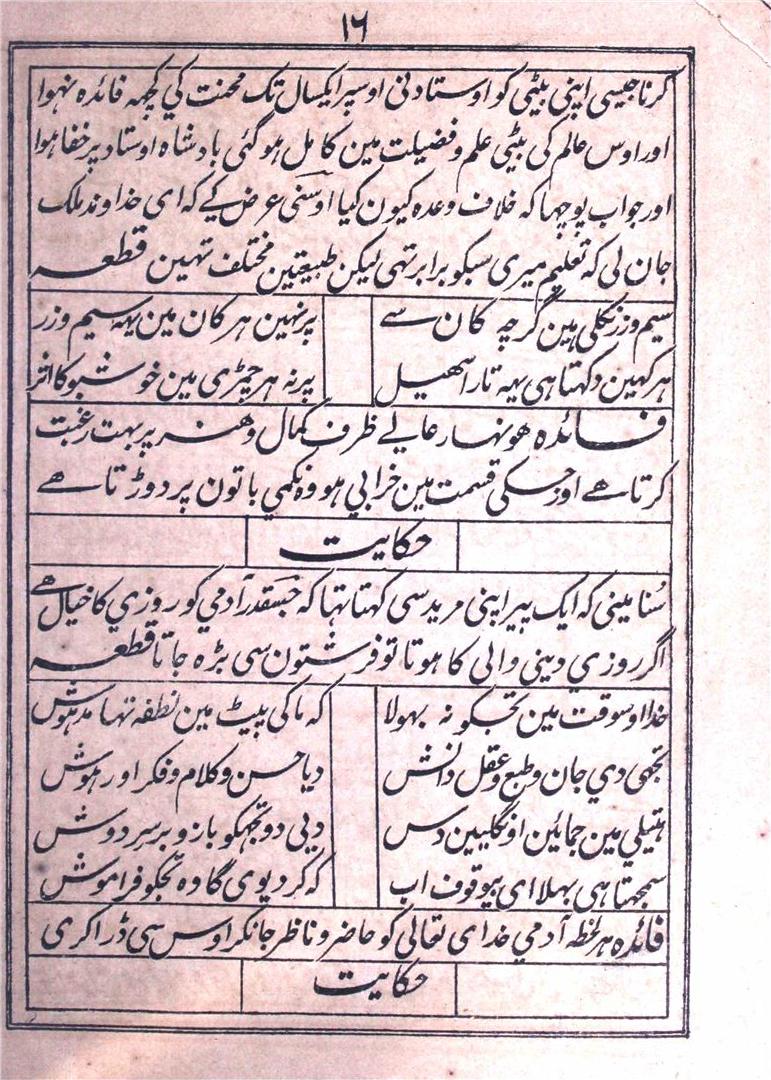 ١٦
کرنا جیسی اپنی بیٹی کو اوستاد نی اوسپر ایکسال تک محنت کی کچہہ فائدہ نہوا
اور اوس عالم کی بیٹی علم و فضیلت مین کامل ہو گئی بادشاہ اوستاد پر خفا ہوا
اور جواب پوچہا کہ خلاف وعدہ کیون کیا اوسنی عرض کے کہ ای خداوند ملک
جان لی کہ تعلیم میری سبکو برابر تہی لیکن طبیعتین مختلف تہین قطعہ
سیم و زر نکلی ہین گرچہ کان سے پر نہین ہر کان مین یہہ سیم و زر
ہر کہین دکہتا ہی یہہ تارا سہیل پر نہ ہر چمڑی مین خوشبو کا اثر
فائدہ ہونہار عالے ظرف کمال و ہنر پر بہت رغبت
کرتا ہے اور جسکی قسمت مین خرابی ہو وہ نکمی باتون پر دوڑتا ہے
حکایت
سُنا مینی کہ ایک پیر اپنی مرید سی کہتا تہا کہ جسقدر آدمی کو روزی کا خیال ہے
اگر روزی دینی والی کا ہوتا تو فرشتون سی بڑہ جاتا قطعہ
خدا اوسوقت مین تجکو نہ بہولا کہ ما کی پیٹ مین نطفہ تہا مدہوش
تجہی دی جان و طبع و عقل و دانش دیا حسن و کلام و فکر اور ہوش
ہتیلی مین جمائین اونگلیین دس دیی دو تجہکو بازو بر سر دوش
سمجہتا ہی بہلا ای بیوقوف اب کہ کر دیوی گا وہ تجکو فراموش
فائدہ ہر لحظہ آدمی خدای تعالی کو حاضر و ناظر جانکر اوس سی ڈرا کری
حکایت